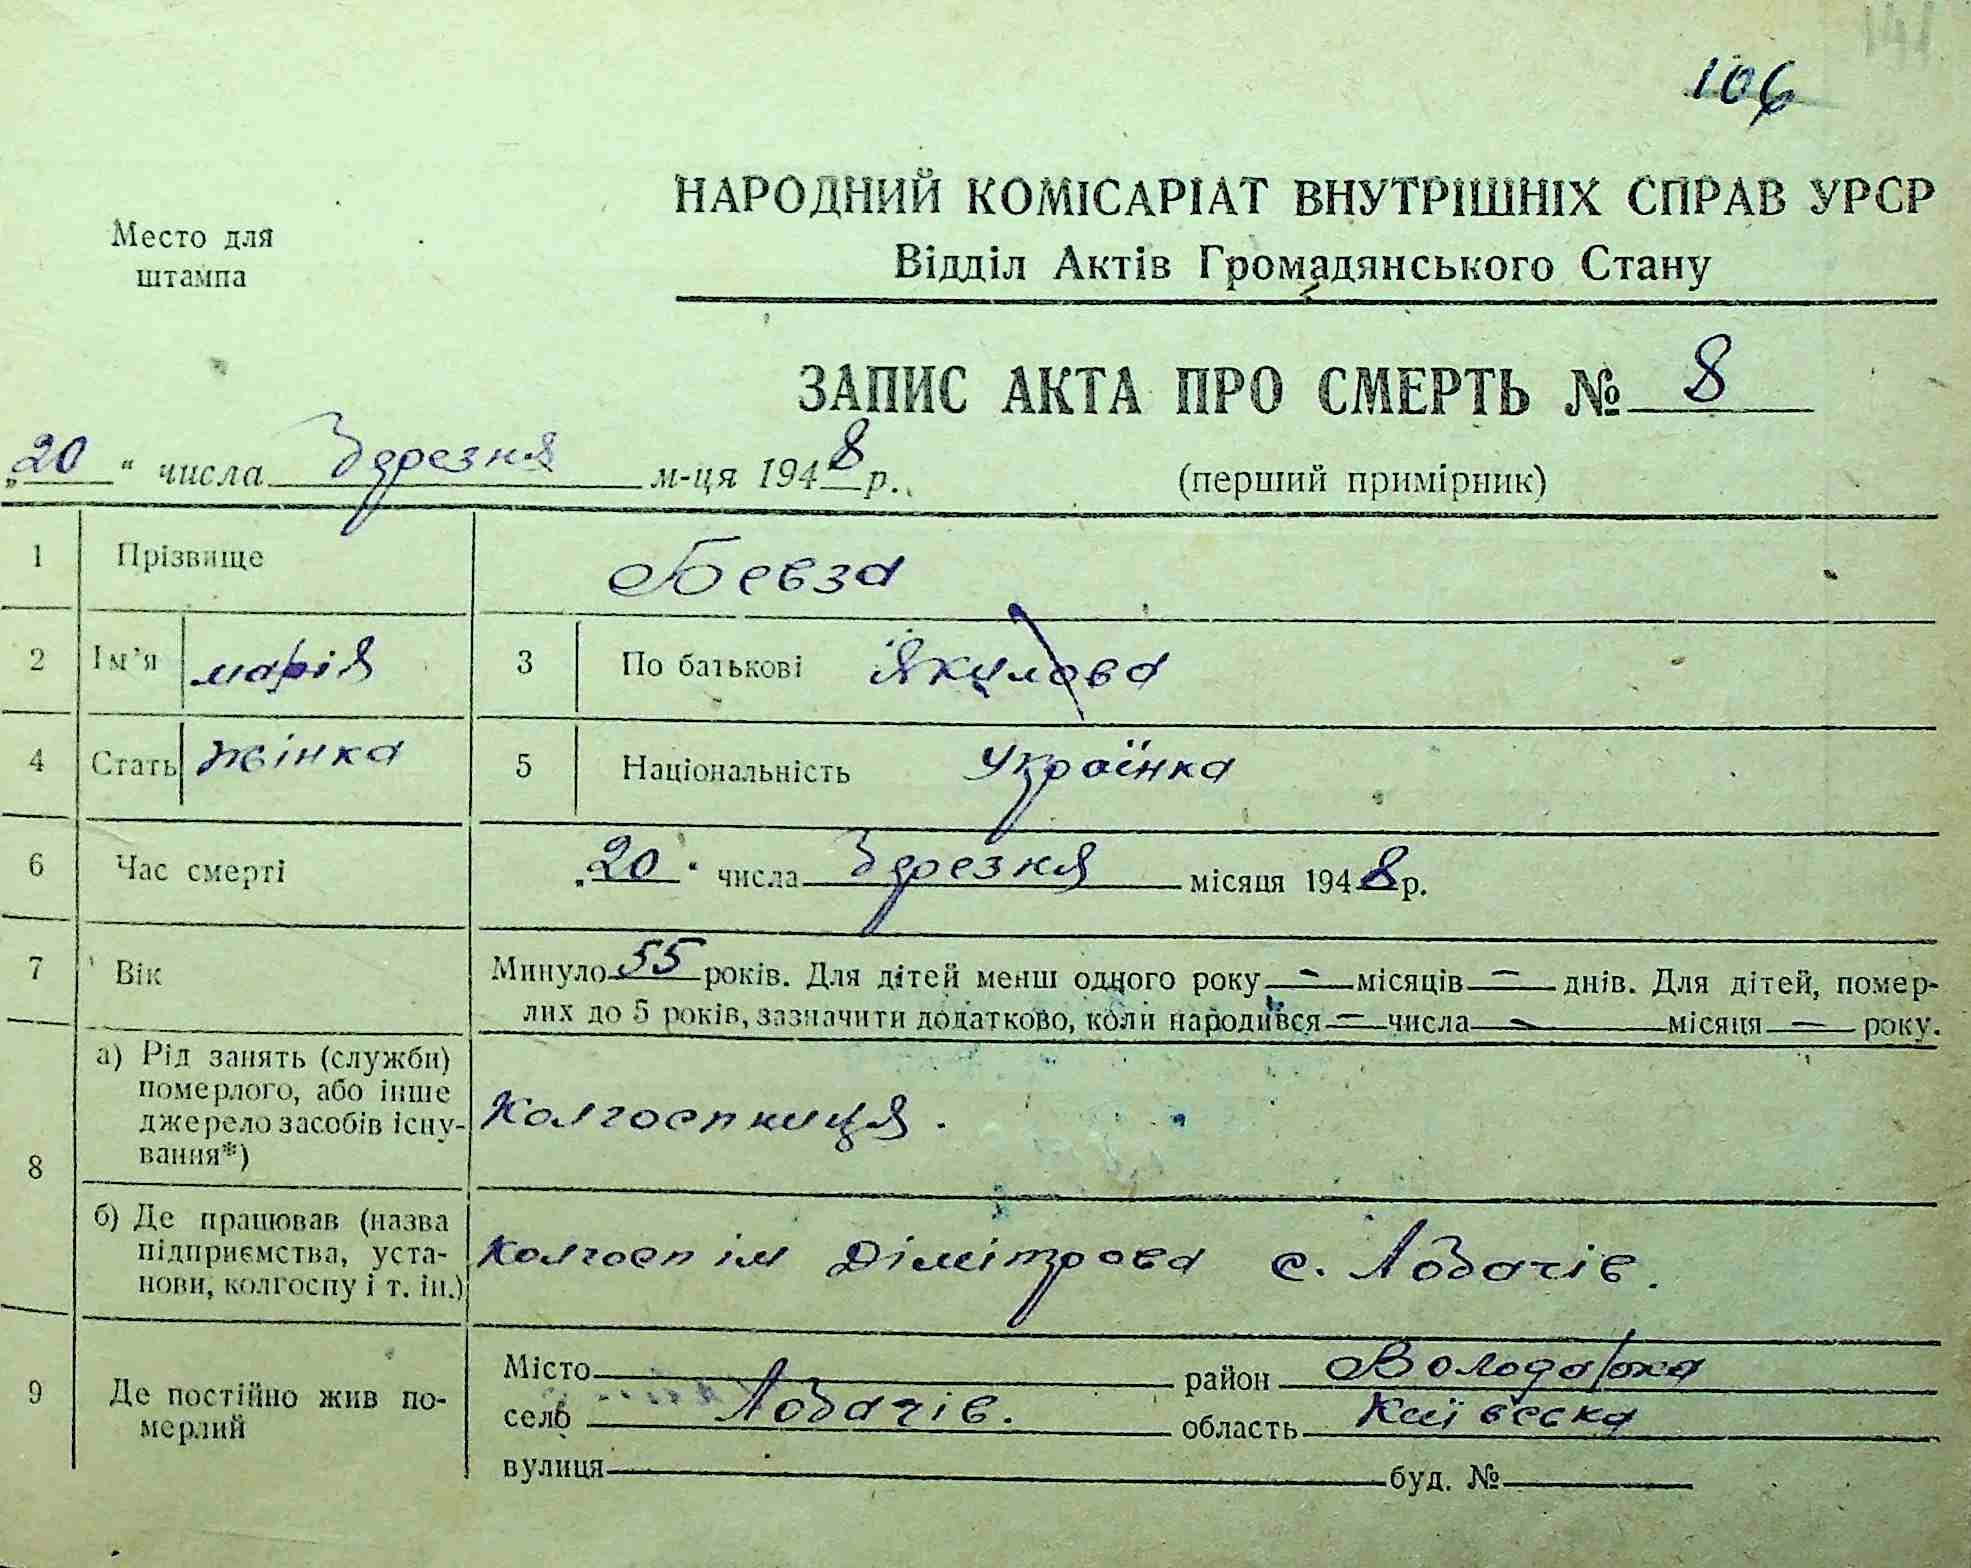 141
106
НАРОДНИЙ КОМІСАРІАТ ВНУТРІШНІХ СПРАВ УРСР
Место для
штампа
Відділ Актів Громадянського Стану
ЗАПИС АКТА ПРО СМЕРТЬ № 8
„20“ числа Березня м-ця 1948 р.
(перший примірник)
1 Прізвище Бевза
2 Ім’я марія 3 По батькові Якулова
4 Стать жінка 5 Національність Українка
6 Час смерті „20“ числа Березня місяця 1948 р.
7 Вік Минуло 55 років. Для дітей менш одного року — місяців — днів. Для дітей, помер-
лих до 5 років, зазначити додатково, коли народився — числа — місяця — року.
8 а) Рід занять (служби)
померлого, або інше
джерело засобів існу-
вання*)
Колгоспниця.
б) Де працював (назва
підприємства, уста-
нови, колгоспу і т. ін.)
Колгосп ім Дімітрова с. Лобачів.
9 Де постійно жив по-
мерлий
Місто район Володарка
село Лобачів. область Київска
вулиця буд. №